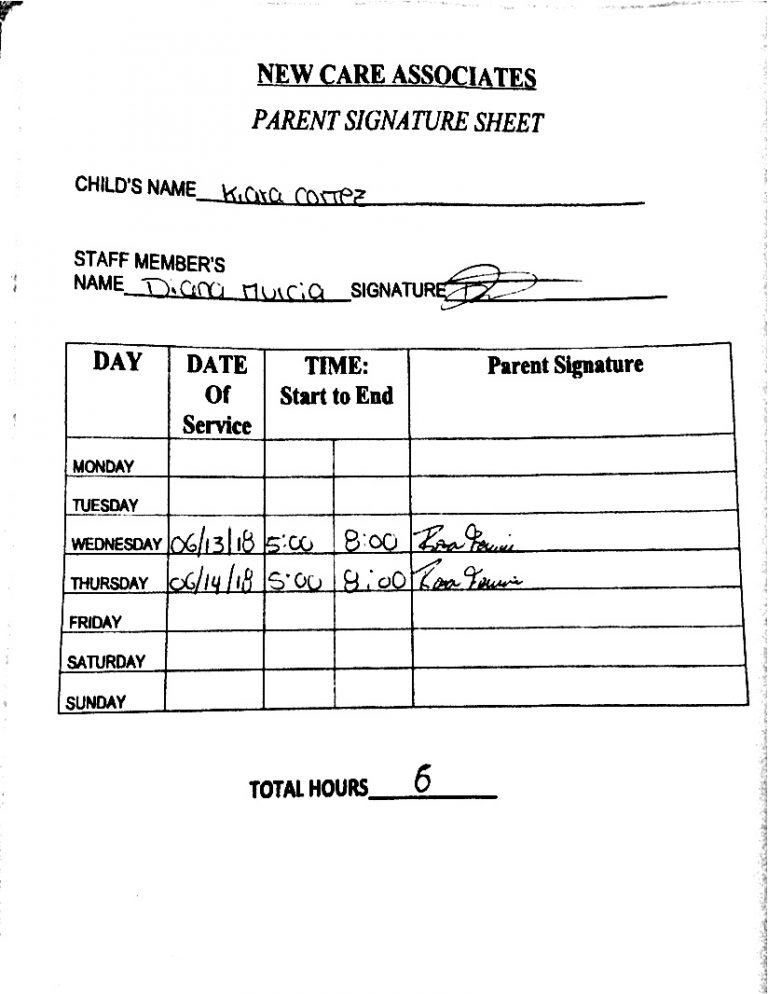 NEW CARE ASSOCIATES
PARENT SIGNATURE SHEET
CHILD'S NAME Kiara Cortez
STAFF MEMBER'S
NAME Diana Murcia SIGNATURE
DAY DATE Of Service TIME: Start to End Parent Signature
MONDAY
TUESDAY
WEDNESDAY 06/13/18 5:00 8:00 Rosa
THURSDAY 06/14/18 5:00 8:00 Rosa
FRIDAY
SATURDAY
SUNDAY
TOTAL HOURS 6